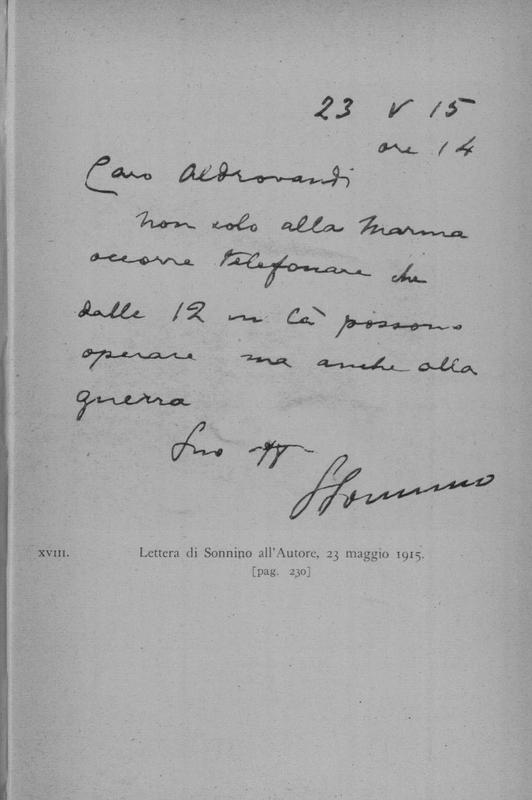 23 V 15
ore 14
Caro Aldrovandi
non solo alla Marina
occorre telefonare che
dalle 12 in là possono
operare ma anche alla
guerra
Suo aff
SSonnino
XVIII. Lettera di Sonnino all'Autore, 23 maggio 1915.
[pag. 230]